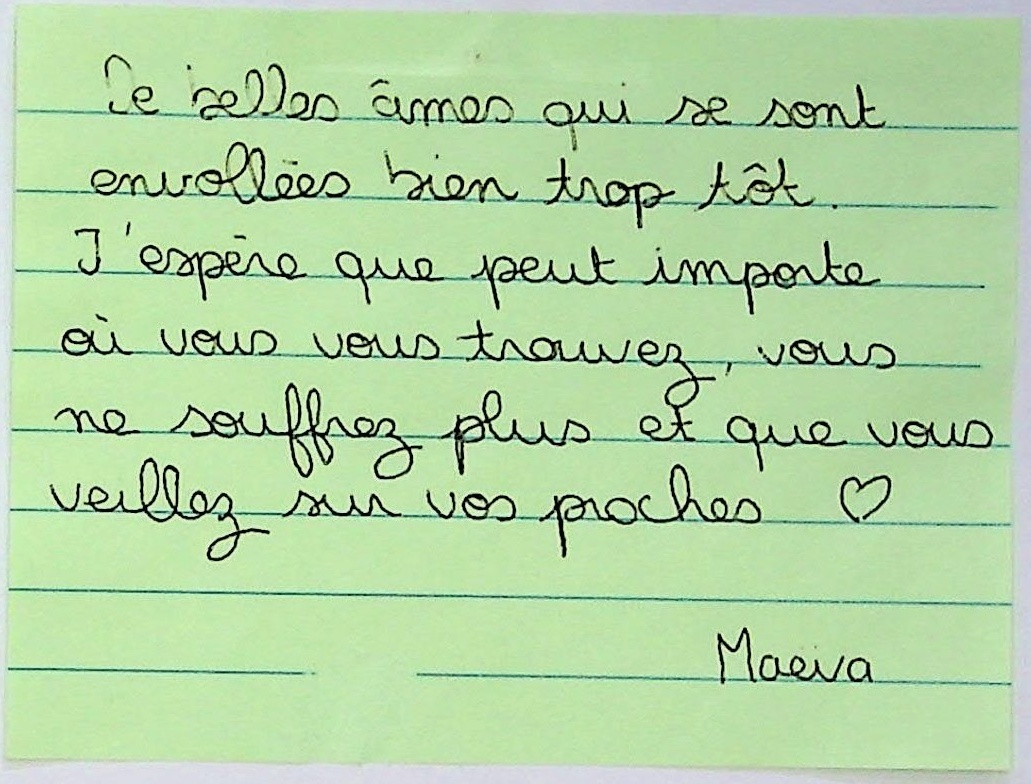 De belles âmes qui se sont
envollées bien trop tôt.
J'espère que peut importe
où vous vous trouvez, vous
ne souffrez plus et que vous
veillez sur vos proches ♡
Maeva